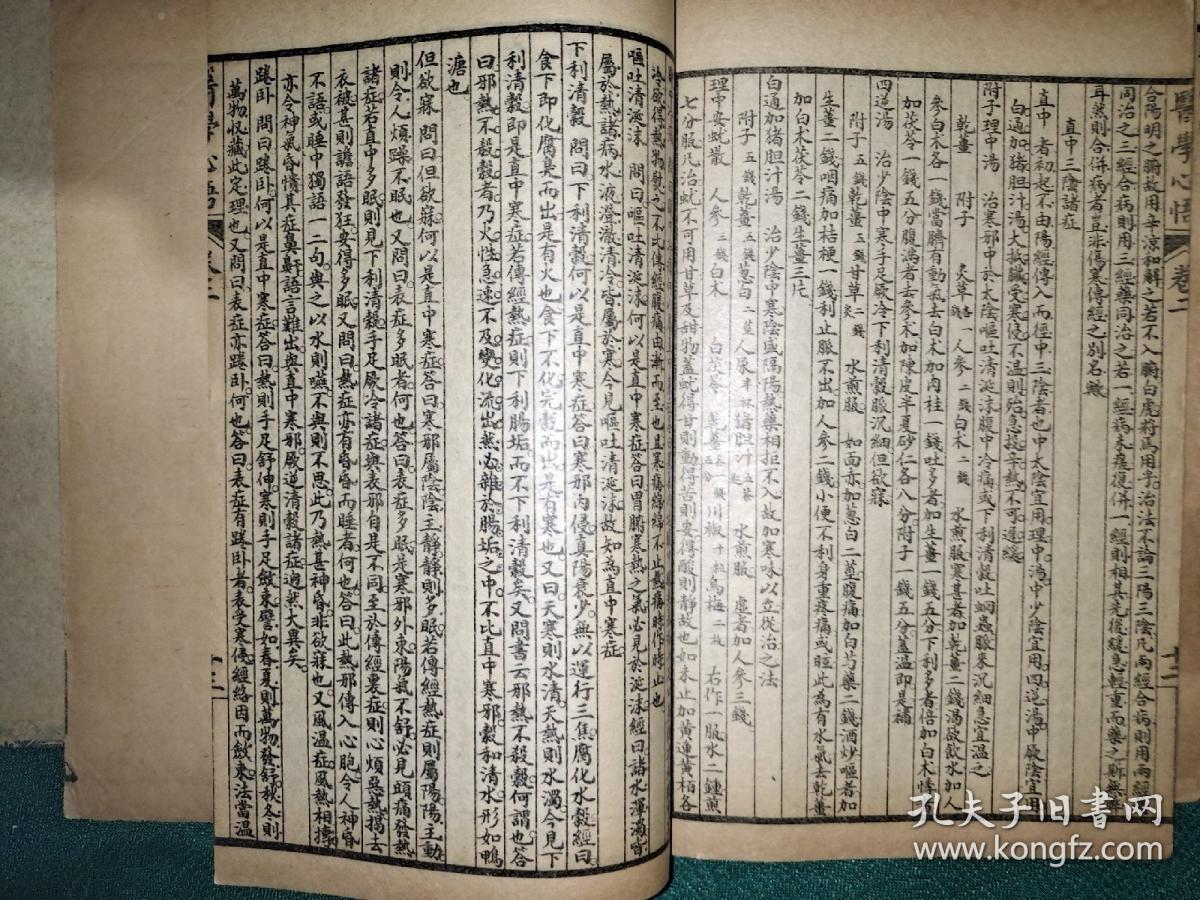 醫學心悟　卷二　十二
合陽明之腑故用辛涼和解之若不入腑白虎將焉用乎治法不論三陽三陰凡兩經合病則用兩經
同治之三經合病則用三經藥同治之若一經病未瘥復併一經則相其先後緩急輕重而藥之斯無
耳然則合併病者豈非傷寒傳經之別名歟
直中三陰諸症
直中者初起不由陽經傳入而徑中三陰者也中太陰宜用理中湯中少陰宜用四逆湯中厥陰宜用
白通加猪胆汁湯大抵臟受寒侵不溫則殆急投辛熱不可遲緩
附子理中湯　治寒邪中於太陰嘔吐清涎沫腹中冷痛或下利清穀吐蚘蟲脈來沉細急宜溫之
乾薑　附子　炙草各一錢　人參二錢　白术二錢　水煎服寒甚者加乾薑二錢渴欲飲水加人
參白术各一錢當臍有動氣去白术加肉桂一錢吐多者加生薑一錢五分下利多者倍加白术悸
加茯苓一錢五分腹滿者去參术加陳皮半夏砂仁各八分附子一錢五分蓋溫即是補
四逆湯　治少陰中寒手足厥冷下利清穀脈沉細但欲寐
附子五錢乾薑五錢甘草炙二錢　水煎服　如面赤加葱白二莖腹痛加白芍藥二錢酒炒嘔者加
生薑二錢咽痛加桔梗一錢利止脈不出加人參二錢小便不利身重疼痛或眩此為有水氣去乾薑
加白术茯苓二錢生薑三片
白通加猪胆汁湯　治少陰中寒陰盛隔陽熱藥相拒不入故加寒味以立從治之法
附子五錢乾薑五錢葱白二莖人尿半杯猪胆汁五茶匙　水煎服　虛者加人參三錢
理中安蚘散　人參三錢白术　白茯苓　乾薑各一錢五分川椒十粒烏梅二枚　右作一服水二鍾煎
七分服凡治蚘不可用甘草及甜物蓋蚘得甘則動得苦則安得酸則靜故也如未止加黃連黃栢各
冷欲得熱物熨之不比傳經腹痛由漸而至也且寒痛綿綿不止熱痛時作時止也
嘔吐清涎沫　問曰嘔吐清涎沫何以是直中寒症答曰胃腑寒熱之氣必見於涎沫經曰諸水渾濁皆
屬於熱諸病水液澄澈清冷皆屬於寒今見嘔吐清涎沫故知為直中寒症
下利清穀　問曰下利清穀何以是直中寒症答曰寒邪內侵真陽衰少無以運行三焦腐化水穀經曰
食下即化腐臭而出是有火也食下不化完穀而出是有寒也又曰天寒則水清天熱則水濁今見下
利清穀即是直中寒症若傳經熱症則下利腸垢而不下利清穀矣又問書云邪熱不殺穀何謂也答
曰邪熱不殺穀者乃火性急速不及變化流出然必雜於腸垢之中不比直中寒邪穀和清水形如鴨
溏也
但欲寐　問曰但欲寐何以是直中寒症答曰寒邪屬陰陰主靜靜則多眠若傳經熱症則屬陽陽主動
則令人煩躁不眠也又問曰表症多眠者何也答曰表症多眠是寒邪外束陽氣不舒必見頭痛發熱
諸症若直中多眠則見下利清穀手足厥冷諸症與表邪自是不同至於傳經裏症則心煩惡熱揭去
衣被甚則譫語發狂安得多眠又問曰熱症亦有昏昏而睡者何也答曰此熱邪傳入心胞令人神昏
不語或睡中獨語一二句與之以水則嚥不與則不思此乃熱甚神昏非欲寐也又風溫症風熱相搏
亦令令神氣昏憒其症鼻鼾語言難出與直中寒邪厥逆清穀諸症迥然大異矣
踡卧　問曰踡卧何以是直中寒症答曰熱則手足舒伸寒則手足斂束譬如春夏則萬物發舒秋冬則
萬物收藏此定理也又問曰表症亦踡卧何也答曰表症有踡卧者表受寒侵經絡因而斂束法當溫
醫學心悟　卷二　十三
孔夫子旧书网
www.kongfz.com